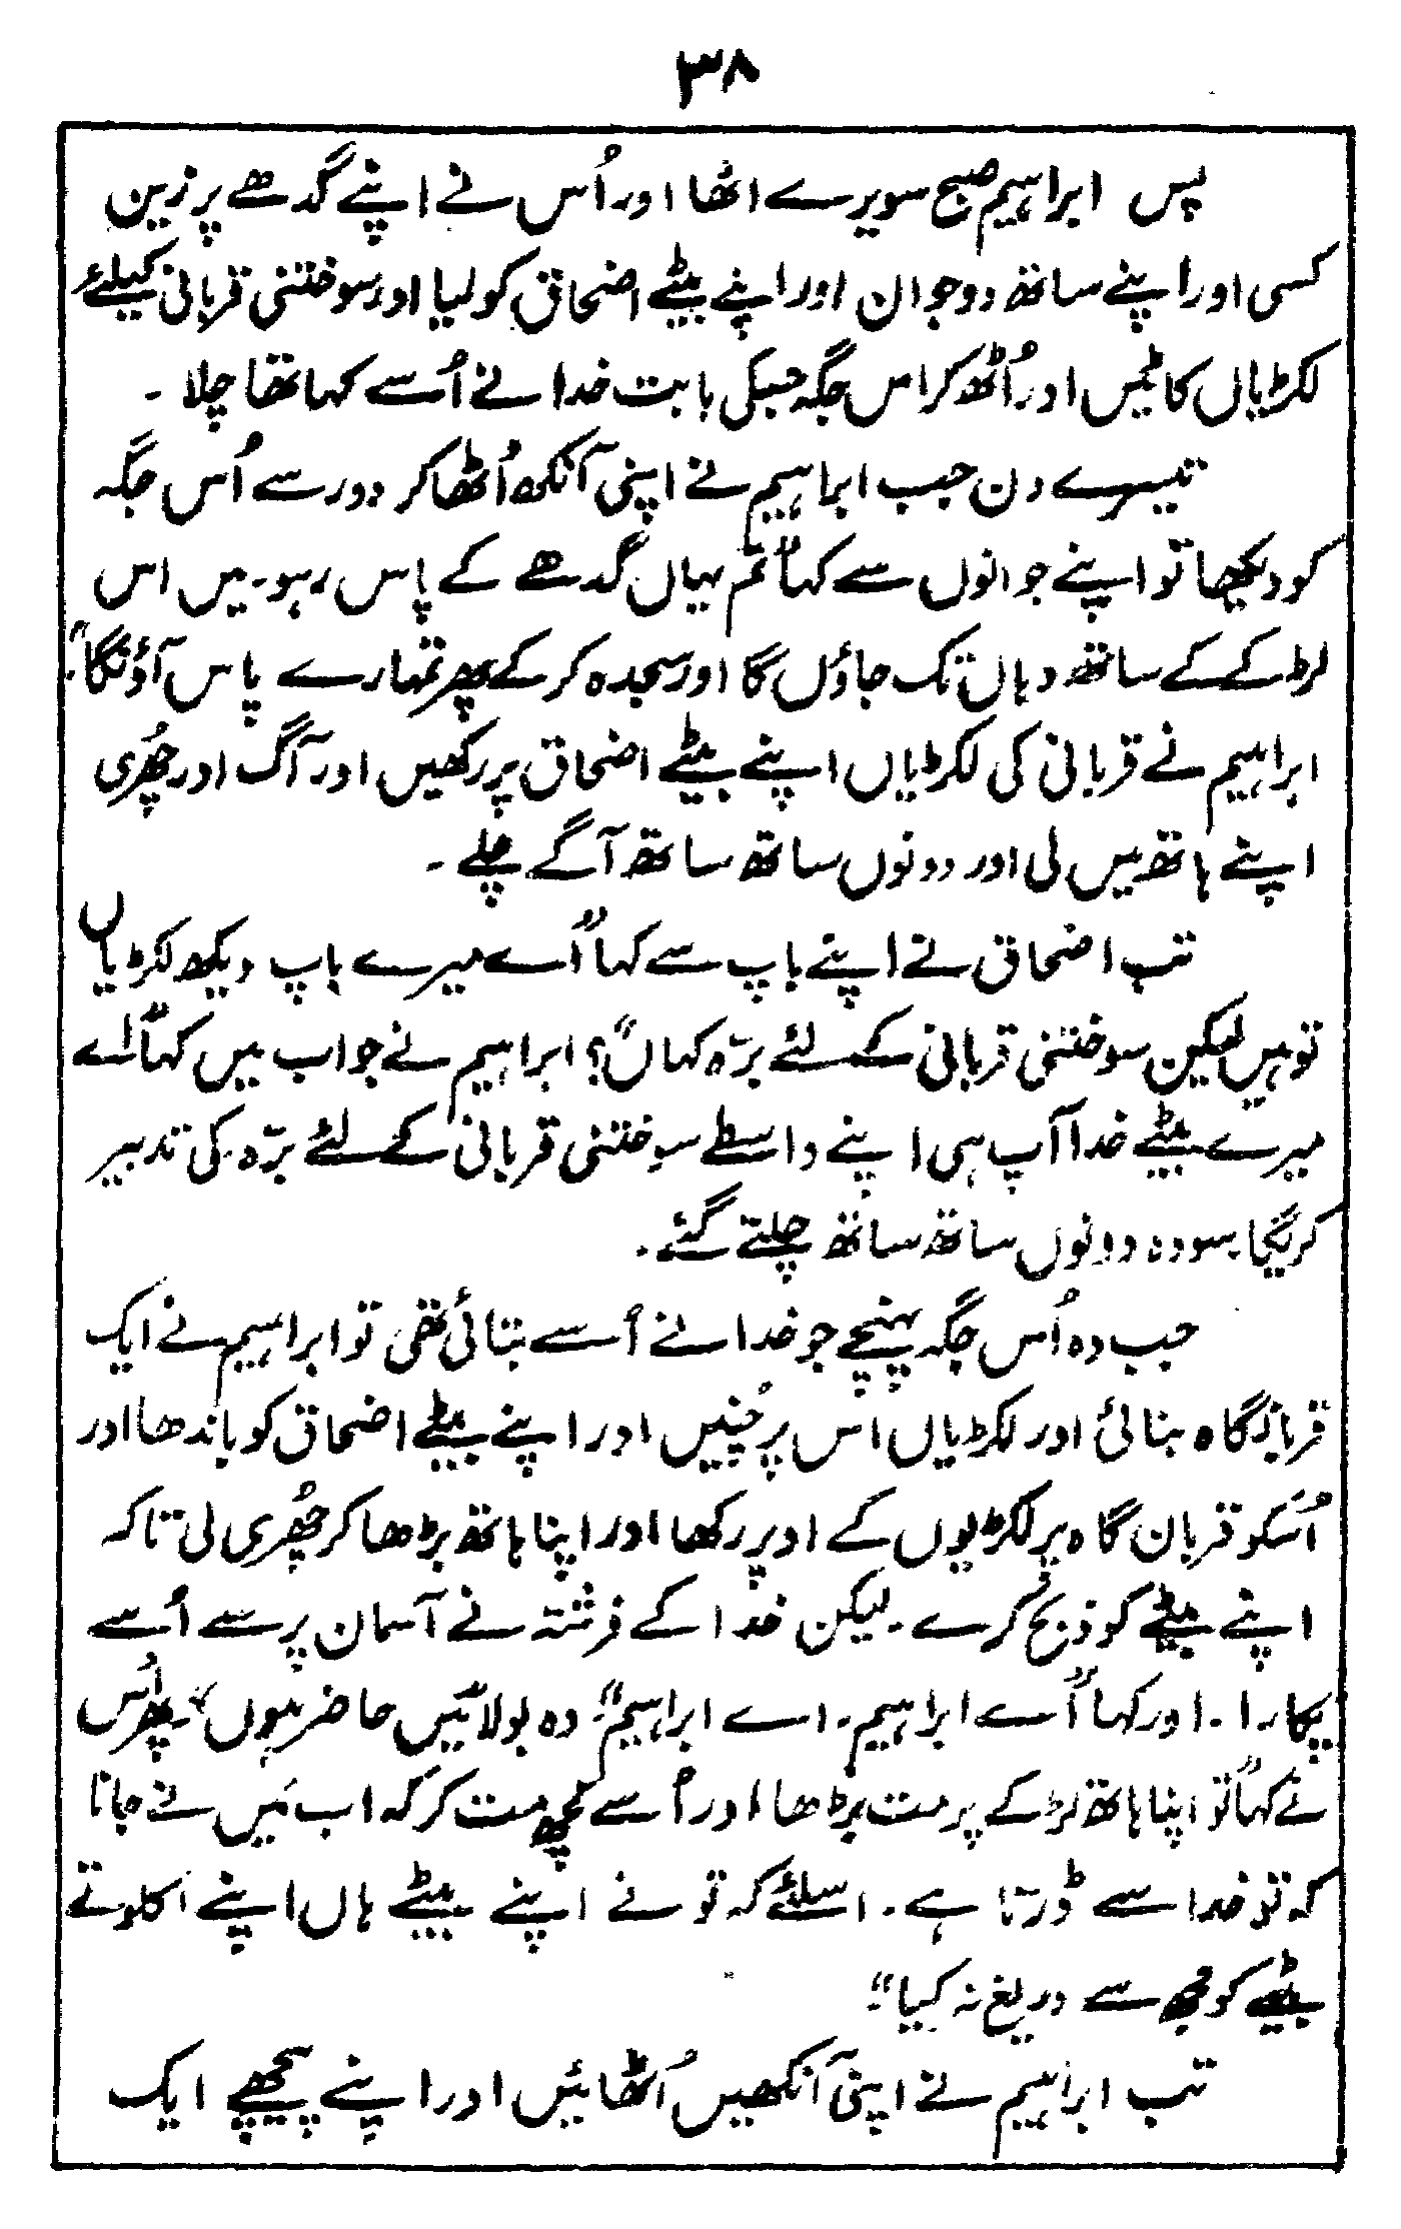 ۳۸
پس ابراہیم صبح سویرے اٹھا اور اُس نے اپنے گدھے پر زین
کسی اور اپنے ساتھ دو جوان اور اپنے بیٹے اضحاق کو لیا اور سوختنی قربانی کیلئے
لکڑیاں کاٹیں اور اُٹھ کر اس جگہ جسکی بابت خدا نے اُسے کہا تھا چلا ۔
تیسرے دن جب ابراہیم نے اپنی آنکھ اُٹھا کر دور سے اُس جگہ
کو دیکھا تو اپنے جوانوں سے کہا "تم یہاں گدھے کے پاس رہو۔ میں اس
لڑکے کے ساتھ وہاں تک جاؤں گا اور سجدہ کر کے پھر تمہارے پاس آؤنگا"۔
ابراہیم نے قربانی کی لکڑیاں اپنے بیٹے اضحاق پر رکھیں اور آگ اور چھُری
اپنے ہاتھ میں لی اور دونوں ساتھ ساتھ آگے چلے ۔
تب اضحاق نے اپنے باپ سے کہا "اَے میرے باپ دیکھ لکڑیاں
تو ہیں لیکن سوختنی قربانی کے لئے برّہ کہاں"؟ ابراہیم نے جواب میں کہا "اے
میرے بیٹے خدا آپ ہی اپنے واسطے سوختنی قربانی کے لئے برّہ کی تدبیر
کریگا۔ سو وہ دونوں ساتھ ساتھ چلتے گئے ۔
جب وہ اُس جگہ پہنچے جو خدا نے اُسے بتائی تھی تو ابراہیم نے ایک
قربانگاہ بنائی اور لکڑیاں اس پر چُنیں اور اپنے بیٹے اضحاق کو باندھا اور
اُسکو قربان گاہ پر لکڑیوں کے اوپر رکھا اور اپنا ہاتھ بڑھا کر چھُری لی تاکہ
اپنے بیٹے کو ذبح کرے ۔ لیکن خدا کے فرشتہ نے آسمان پر سے اُسے
پکارا ۔ اور کہا "اَے ابراہیم ۔ اے ابراہیم"۔ وہ بولا "مَیں حاضر ہوں"۔ پھر اُس
نے کہا "تو اپنا ہاتھ لڑکے پر مت بڑھا اور اُسے کچھ مت کر کہ اب مَیں نے جانا
کہ تو خدا سے ڈرتا ہے ۔ اسلئے کہ تو نے اپنے بیٹے ہاں اپنے اکلوتے
بیٹے کو مجھ سے دریغ نہ کیا"۔
تب ابراہیم نے اپنی آنکھیں اُٹھائیں اور اپنے پیچھے ایک